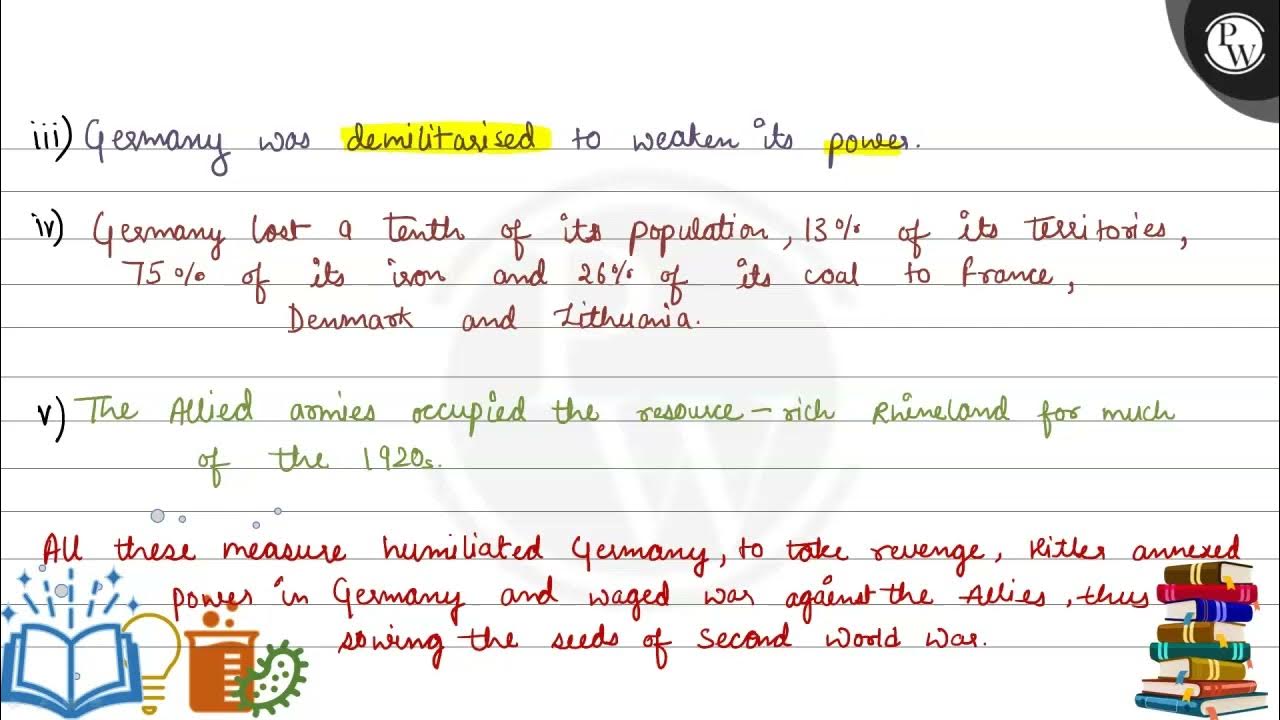 PW
iii) Germany was demilitarised to weaken its power.
iv) Germany lost a tenth of its population, 13% of its territories,
75% of its iron and 26% of its coal to France,
Denmark and Lithuania.
v) The Allied armies occupied the resource-rich Rhineland for much
of the 1920s.
All these measure humiliated Germany, to take revenge, Hitler annexed
power in Germany and waged war against the Allies, thus
sowing the seeds of Second World War.